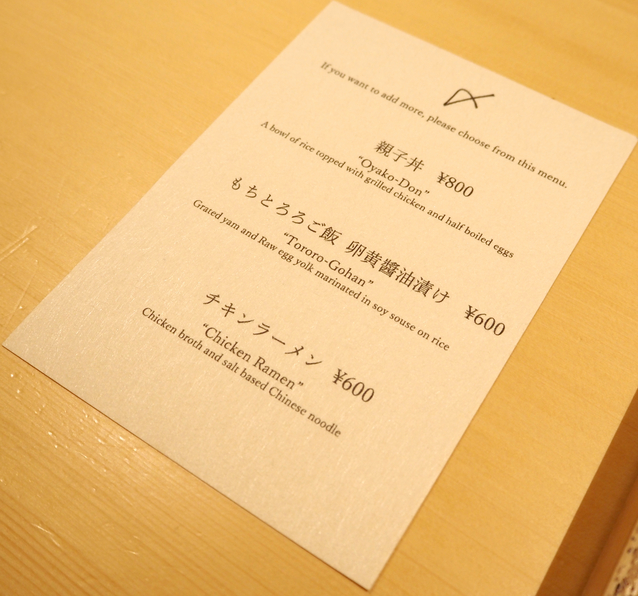 〆
If you want to add more, please choose from this menu.
親子丼 ¥800
“Oyako-Don”
A bowl of rice topped with grilled chicken and half boiled eggs
もちとろろご飯 卵黄醬油漬け ¥600
“Tororo-Gohan”
Grated yam and Raw egg yolk marinated in soy souse on rice
チキンラーメン ¥600
“Chicken Ramen”
Chicken broth and salt based Chinese noodle